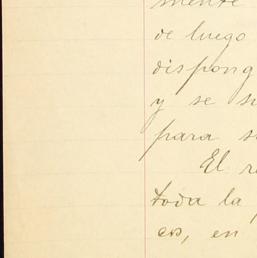 mente
de luego
dispong
y se
para s
El r
toda la
es, en